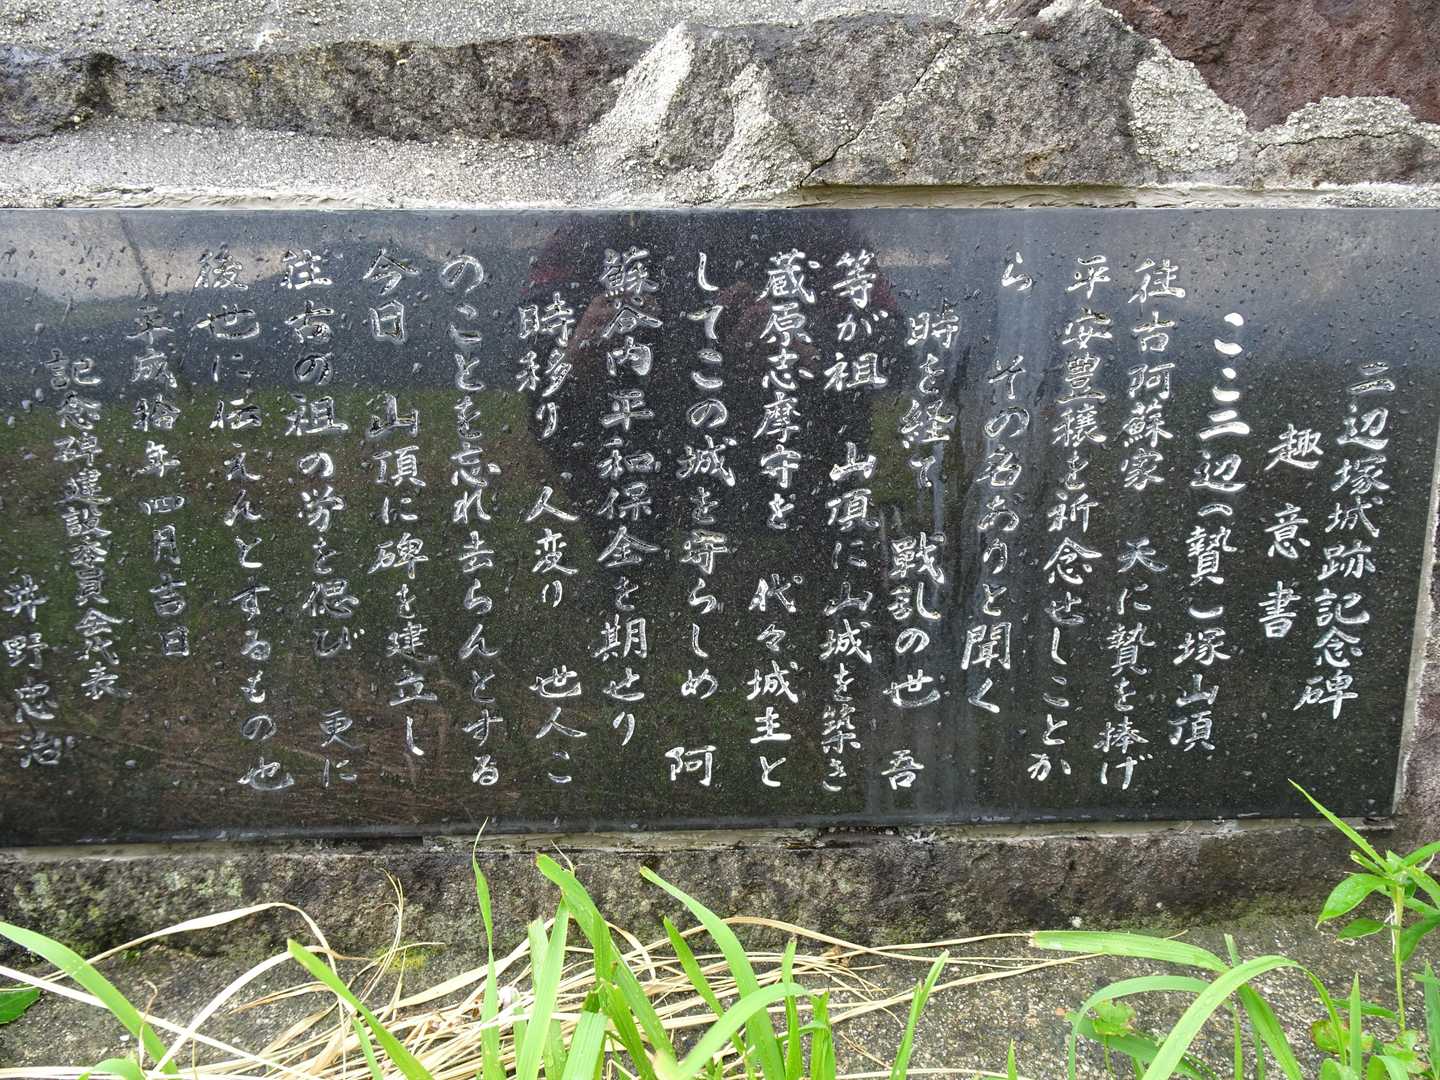 二辺塚城跡記念碑
趣意書
ここ二辺(贄)塚山頂
往古阿蘇家 天に贄を捧げ
平安豊穣を祈念せしことか
ら その名ありと聞く
時を経て 戦乱の世 吾
等が祖 山頂に山城を築き
蔵原志摩守を 代々城主と
してこの城を守らしめ 阿
蘇谷内平和保全を期せり
時移り 人変り 世人こ
のことを忘れ去らんとする
今日 山頂に碑を建立し
往古の祖の労を偲び 更に
後世に伝えんとするもの也
平成拾年四月吉日
記念碑建設委員会代表
井野忠治